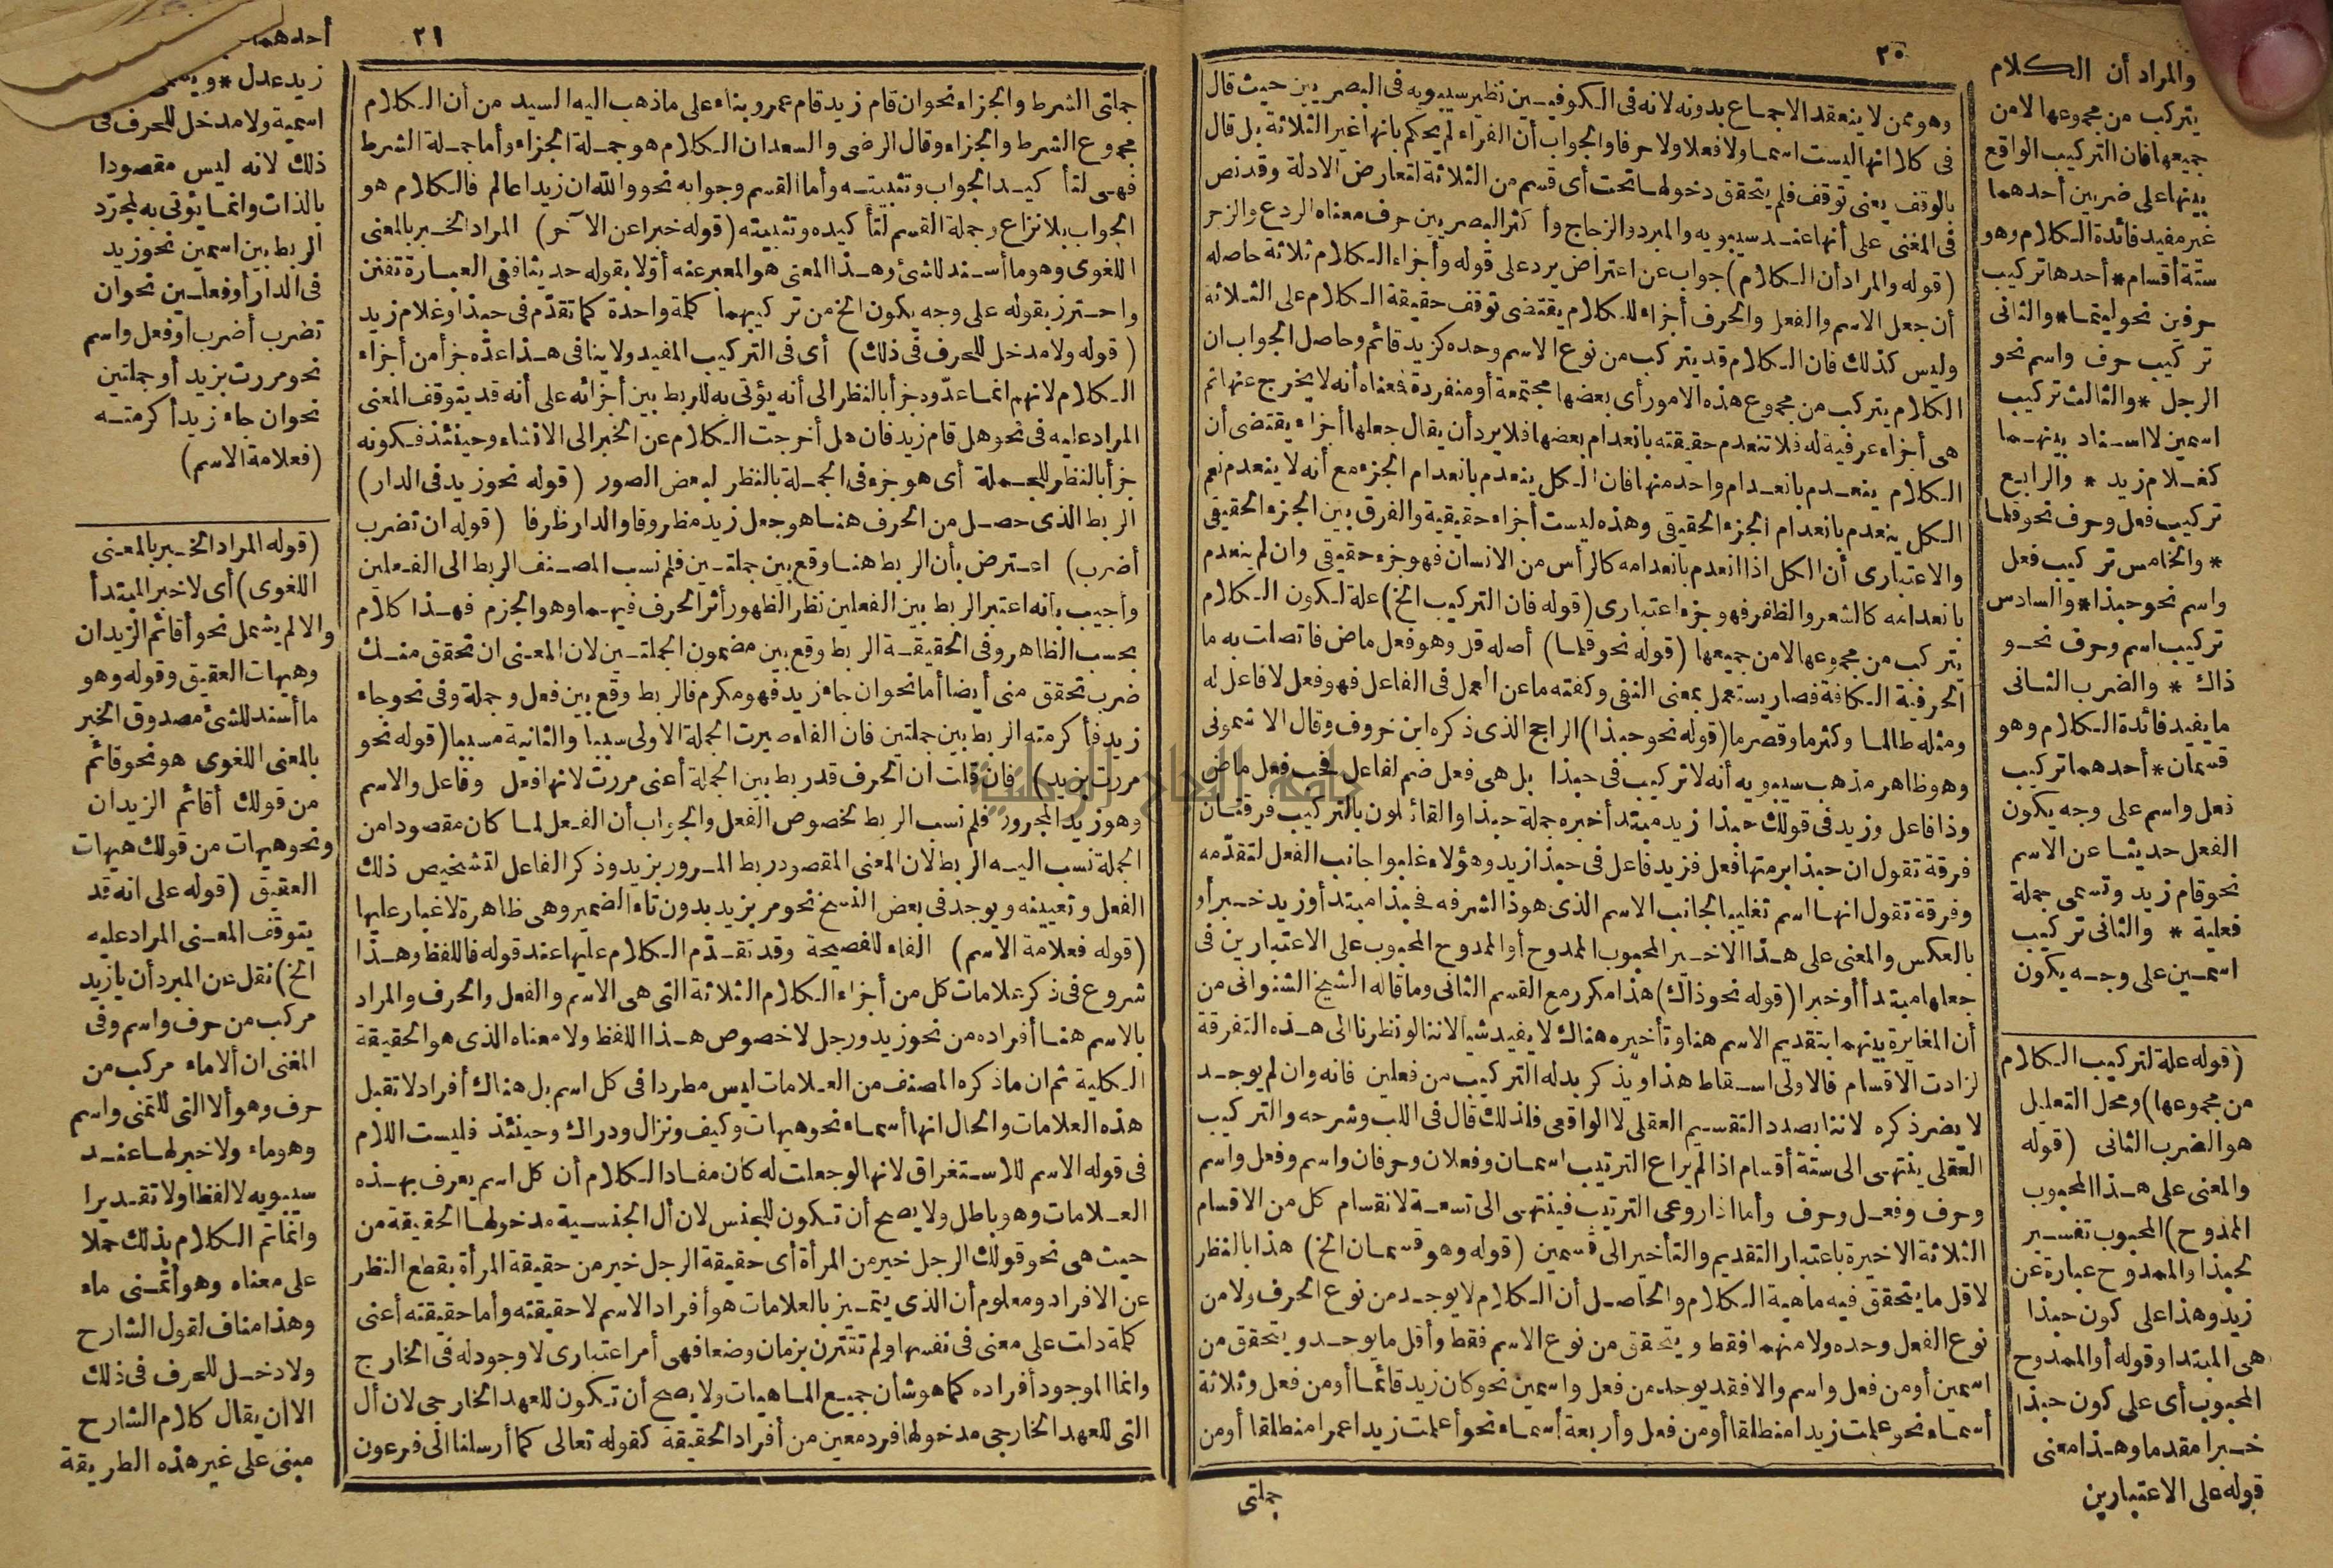 ٢٠
والمراد أن الكلام
يتركب من مجموعها لا من
جميعها فان التركيب الواقع
بينها على ضربين أحدهما
غير مفيد فائدة الكلام وهو
ستة أقسام * أحدها تركيب
حرفين نحو ليتما * والثانى
تركيب حرف واسم نحو
الرجل * والثالث تركيب
اسمين لا اسناد بينهما
كغلام زيد * والرابع
تركيب فعل وحرف نحو قلما
* والخامس تركيب فعل
واسم نحو حبذا * والسادس
تركيب اسم وحرف نحو
ذاك * والضرب الثانى
ما يفيد فائدة الكلام وهو
قسمان * أحدهما تركيب
فعل واسم على وجه يكون
الفعل حديثا عن الاسم
نحو قام زيد وتسمى جملة
فعلية * والثانى تركيب
اسمين على وجه يكون
(قوله علة لتركيب الكلام
من مجموعها) ومحل التعليل
هو الضرب الثانى (قوله
والمعنى على هذا المحبوب
الممدوح) المحبوب تفسير
لحبذا والممدوح عبارة عن
زيد وهذا على كون حبذا
هى المبتدا وقوله أو الممدوح
المحبوب أى على كون حبذا
خبرا مقدما وهذا معنى
قوله على الاعتبارين
وهو ممن لا ينعقد الاجماع بدونه لانه فى الكوفيين نظير سيبويه فى البصريين حيث قال
فى كلا انها ليست اسما ولا فعلا ولا حرفا والجواب أن الفراء لم يحكم بانها غير الثلاثة بل قال
بالوقف يعنى توقف فلم يتحقق دخولها تحت أى قسم من الثلاثة لتعارض الادلة وقد نص
فى المغنى على أنها عند سيبويه والمبرد والزجاج وأكثر البصريين حرف معناه الردع والزجر
(قوله والمراد أن الكلام) جواب عن اعتراض يرد على قوله وأجزاء الكلام ثلاثة حاصله
أن جعل الاسم والفعل والحرف أجزاء للكلام يقتضى توقف حقيقة الكلام على الثلاثة
وليس كذلك فان الكلام قد يتركب من نوع الاسم وحده كزيد قائم وحاصل الجواب ان
الكلام يتركب من مجموع هذه الامور أى بعضها مجتمعة أو منفردة فمعناه أنه لا يخرج عنها ثم
هى أجزاء عرفية له فلا تنعدم حقيقته بانعدام بعضها فلا يرد أن يقال جعلها أجزاء يقتضى أن
الكلام ينعدم بانعدام واحد منها فان الكل ينعدم بانعدام الجزء مع أنه لا ينعدم نعم
الكل ينعدم بانعدام الجزء الحقيقى وهذه ليست أجزاء حقيقية والفرق بين الجزء الحقيقى
والاعتبارى أن الكل اذا انعدم بانعدامه كالرأس من الانسان فهو جزء حقيقى وان لم ينعدم
بانعدامه كالشعر والظفر فهو جزء اعتبارى (قوله فان التركيب الخ) علة لكون الكلام
يتركب من مجموعها لا من جميعها (قوله نحو قلما) أصله قل وهو فعل ماض فاتصلت به ما
الحرفية الكافة فصار يستعمل بمعنى النفى وكفته ما عن العمل فى الفاعل فهو فعل لا فاعل له
ومثله طالما وكثرما وقصرما (قوله نحو حبذا) الراجح الذى ذكره ابن خروف وقال الاشمونى
وهو ظاهر مذهب سيبويه أنه لا تركيب فى حبذا بل هى فعل ضم لفاعل فحب فعل ماض
وذا فاعل وزيد فى قولك حبذا زيد مبتدأ خبره جملة حبذا والقائلون بالتركيب فرقتان
فرقة تقول ان حبذا برمتها فعل فزيد فاعل فى حبذا زيد وهؤلاء غلبوا جانب الفعل لتقدمه
وفرقة تقول انها اسم تغليبا لجانب الاسم الذى هو ذا لشرفه فحبذا مبتدأ وزيد خبر أو
بالعكس والمعنى على هذا الاخير المحبوب الممدوح أو الممدوح المحبوب على الاعتبارين فى
جعلها مبتدأ أو خبرا (قوله نحو ذاك) هذا مكرر مع القسم الثانى وما قاله الشيخ الشنوانى من
أن المغايرة بينهما بتقديم الاسم هنا وتأخيره هناك لا يفيد شيأ لاننا لو نظرنا الى هذه التفرقة
لزادت الاقسام فالاولى اسقاط هذا ويذكر بدله التركيب من فعلين فانه وان لم يوجد
لا يضر ذكره لاننا بصدد التقسيم العقلى لا الواقعى فلذلك قال فى اللب وشرحه والتركيب
العقلى ينتهى الى ستة أقسام اذا لم يراع الترتيب اسمان وفعلان وحرفان واسم وفعل واسم
وحرف وفعل وحرف وأما اذا روعى الترتيب فينتهى الى تسعة لانقسام كل من الاقسام
الثلاثة الاخيرة باعتبار التقديم والتأخير الى قسمين (قوله وهو قسمان الخ) هذا بالنظر
لاقل ما يتحقق فيه ماهية الكلام والحاصل أن الكلام لا يوجد من نوع الحرف ولا من
نوع الفعل وحده ولا منهما فقط ويتحقق من نوع الاسم فقط وأقل ما يوجد ويتحقق من
اسمين أو من فعل واسم والا فقد يوجد من فعل واسمين نحو كان زيد قائما أو من فعل وثلاثة
أسماء نحو علمت زيدا منطلقا أو من فعل وأربعة أسماء نحو أعلمت زيدا عمرا منطلقا أو من
جملتى
٢١
جملتى الشرط والجزاء نحو ان قام زيد قام عمرو بناء على ما ذهب اليه السيد من أن الكلام
مجموع الشرط والجزاء وقال الرضى والسعد ان الكلام هو جملة الجزاء وأما جملة الشرط
فهى لتأكيد الجواب وتثبيته وأما القسم وجوابه نحو والله ان زيدا عالم فالكلام هو
الجواب بلا نزاع وجملة القسم لتأكيده وتثبيته (قوله خبرا عن الآخر) المراد الخبر بالمعنى
اللغوى وهو ما أسند للشئ وهذا المعنى هو المعبر عنه أولا بقوله حديثا ففى العبارة تفنن
واحترز بقوله على وجه يكون الخ من تركيبهما كلمة واحدة كما تقدم فى حبذا وغلام زيد
(قوله ولا مدخل للحرف فى ذلك) أى فى التركيب المفيد ولا ينافى هذا عده جزأ من أجزاء
الكلام لانهم انما عدوه جزأ بالنظر الى أنه يؤتى به للربط بين أجزائه على أنه قد يتوقف المعنى
المراد عليه فى نحو هل قام زيد فان هل أخرجت الكلام عن الخبر الى الانشاء وحينئذ فكونه
جزأ بالنظر للجملة أى هو جزء فى الجملة بالنظر لبعض الصور (قوله نحو زيد فى الدار)
الربط الذى حصل من الحرف هنا هو جعل زيد مظروفا والدار ظرفا (قوله ان تضرب
أضرب) اعترض بأن الربط هنا وقع بين جملتين فلم نسب المصنف الربط الى الفعلين
وأجيب بأنه اعتبر الربط بين الفعلين نظر الظهور أثر الحرف فيهما وهو الجزم فهذا كلام
بحسب الظاهر وفى الحقيقة الربط وقع بين مضمون الجملتين لان المعنى ان تحقق منك
ضرب تحقق منى أيضا أما نحو ان جاء زيد فهو مكرم فالربط وقع بين فعل وجملة وفى نحو جاء
زيد فأكرمته الربط بين جملتين فان الفاء صيرت الجملة الاولى سببا والثانية مسببا (قوله نحو
مررت بزيد) فان قلت ان الحرف قد ربط بين الجملة أعنى مررت لانها فعل وفاعل والاسم
وهو زيد المجرور فلم نسب الربط لخصوص الفعل والجواب أن الفعل لما كان مقصودا من
الجملة نسب اليه الربط لان المعنى المقصود ربط المرور بزيد وذكر الفاعل لتشخيص ذلك
الفعل وتعيينه ويوجد فى بعض النسخ نحو مر بزيد بدون تاء الضمير وهى ظاهرة لا غبار عليها
(قوله فعلامة الاسم) الفاء للفصيحة وقد تقدم الكلام عليها عند قوله فاللفظ وهذا
شروع فى ذكر علامات كل من أجزاء الكلام الثلاثة التى هى الاسم والفعل والحرف والمراد
بالاسم هنا أفراده من نحو زيد ورجل لا خصوص هذا اللفظ ولا معناه الذى هو الحقيقة
الكلية ثم ان ما ذكره المصنف من العلامات ليس مطردا فى كل اسم بل هناك أفراد لا تقبل
هذه العلامات والحال انها أسماء نحو هيهات وكيف ونزال ودراك وحينئذ فليست اللام
فى قوله الاسم للاستغراق لانها لو جعلت له كان مفاد الكلام أن كل اسم يعرف بهذه
العلامات وهو باطل ولا يصح أن تكون للجنس لان أل الجنسية مدخولها الحقيقة من
حيث هى نحو قولك الرجل خير من المرأة أى حقيقة الرجل خير من حقيقة المرأة بقطع النظر
عن الافراد ومعلوم أن الذى يتميز بالعلامات هو أفراد الاسم لا حقيقته وأما حقيقته أعنى
كلمة دلت على معنى فى نفسها ولم تقترن بزمان وضعا فهى أمر اعتبارى لا وجود له فى الخارج
وانما الموجود أفراده كما هو شأن جميع الماهيات ولا يصح أن تكون للعهد الخارجى لان أل
التى للعهد الخارجى مدخولها فرد معين من أفراد الحقيقة كقوله تعالى كما أرسلنا الى فرعون
أحدهما
زيد عدل *
اسمية ولا مدخل للحرف فى
ذلك لانه ليس مقصودا
بالذات وانما يؤتى به لمجرد
الربط بين اسمين نحو زيد
فى الدار أو فعلين نحو ان
تضرب أضرب أو فعل واسم
نحو مررت بزيد أو جملتين
نحو ان جاء زيد أكرمته
(فعلامة الاسم)
(قوله المراد الخبر بالمعنى
اللغوى) أى لا خبر المبتدأ
والا لم يشمل نحو أقائم الزيدان
وهيهات العقيق وقوله وهو
ما أسند للشئ مصدوق الخبر
بالمعنى اللغوى هو نحو قائم
من قولك أقائم الزيدان
ونحو هيهات من قولك هيهات
العقيق (قوله على انه قد
يتوقف المعنى المراد عليه
الخ) نقل عن المبرد أن يا زيد
مركب من حرف واسم وفى
المغنى ان ألا ماء مركب من
حرف وهو ألا التى للتمنى واسم
وهو ماء ولا خبر لها عند
سيبويه لا لفظا ولا تقديرا
وانما تم الكلام بذلك حملا
على معناه وهو أتمنى ماء
وهذا مناف لقول الشارح
ولا دخل للحرف فى ذلك
الا ان يقال كلام الشارح
مبنى على غير هذه الطريقة